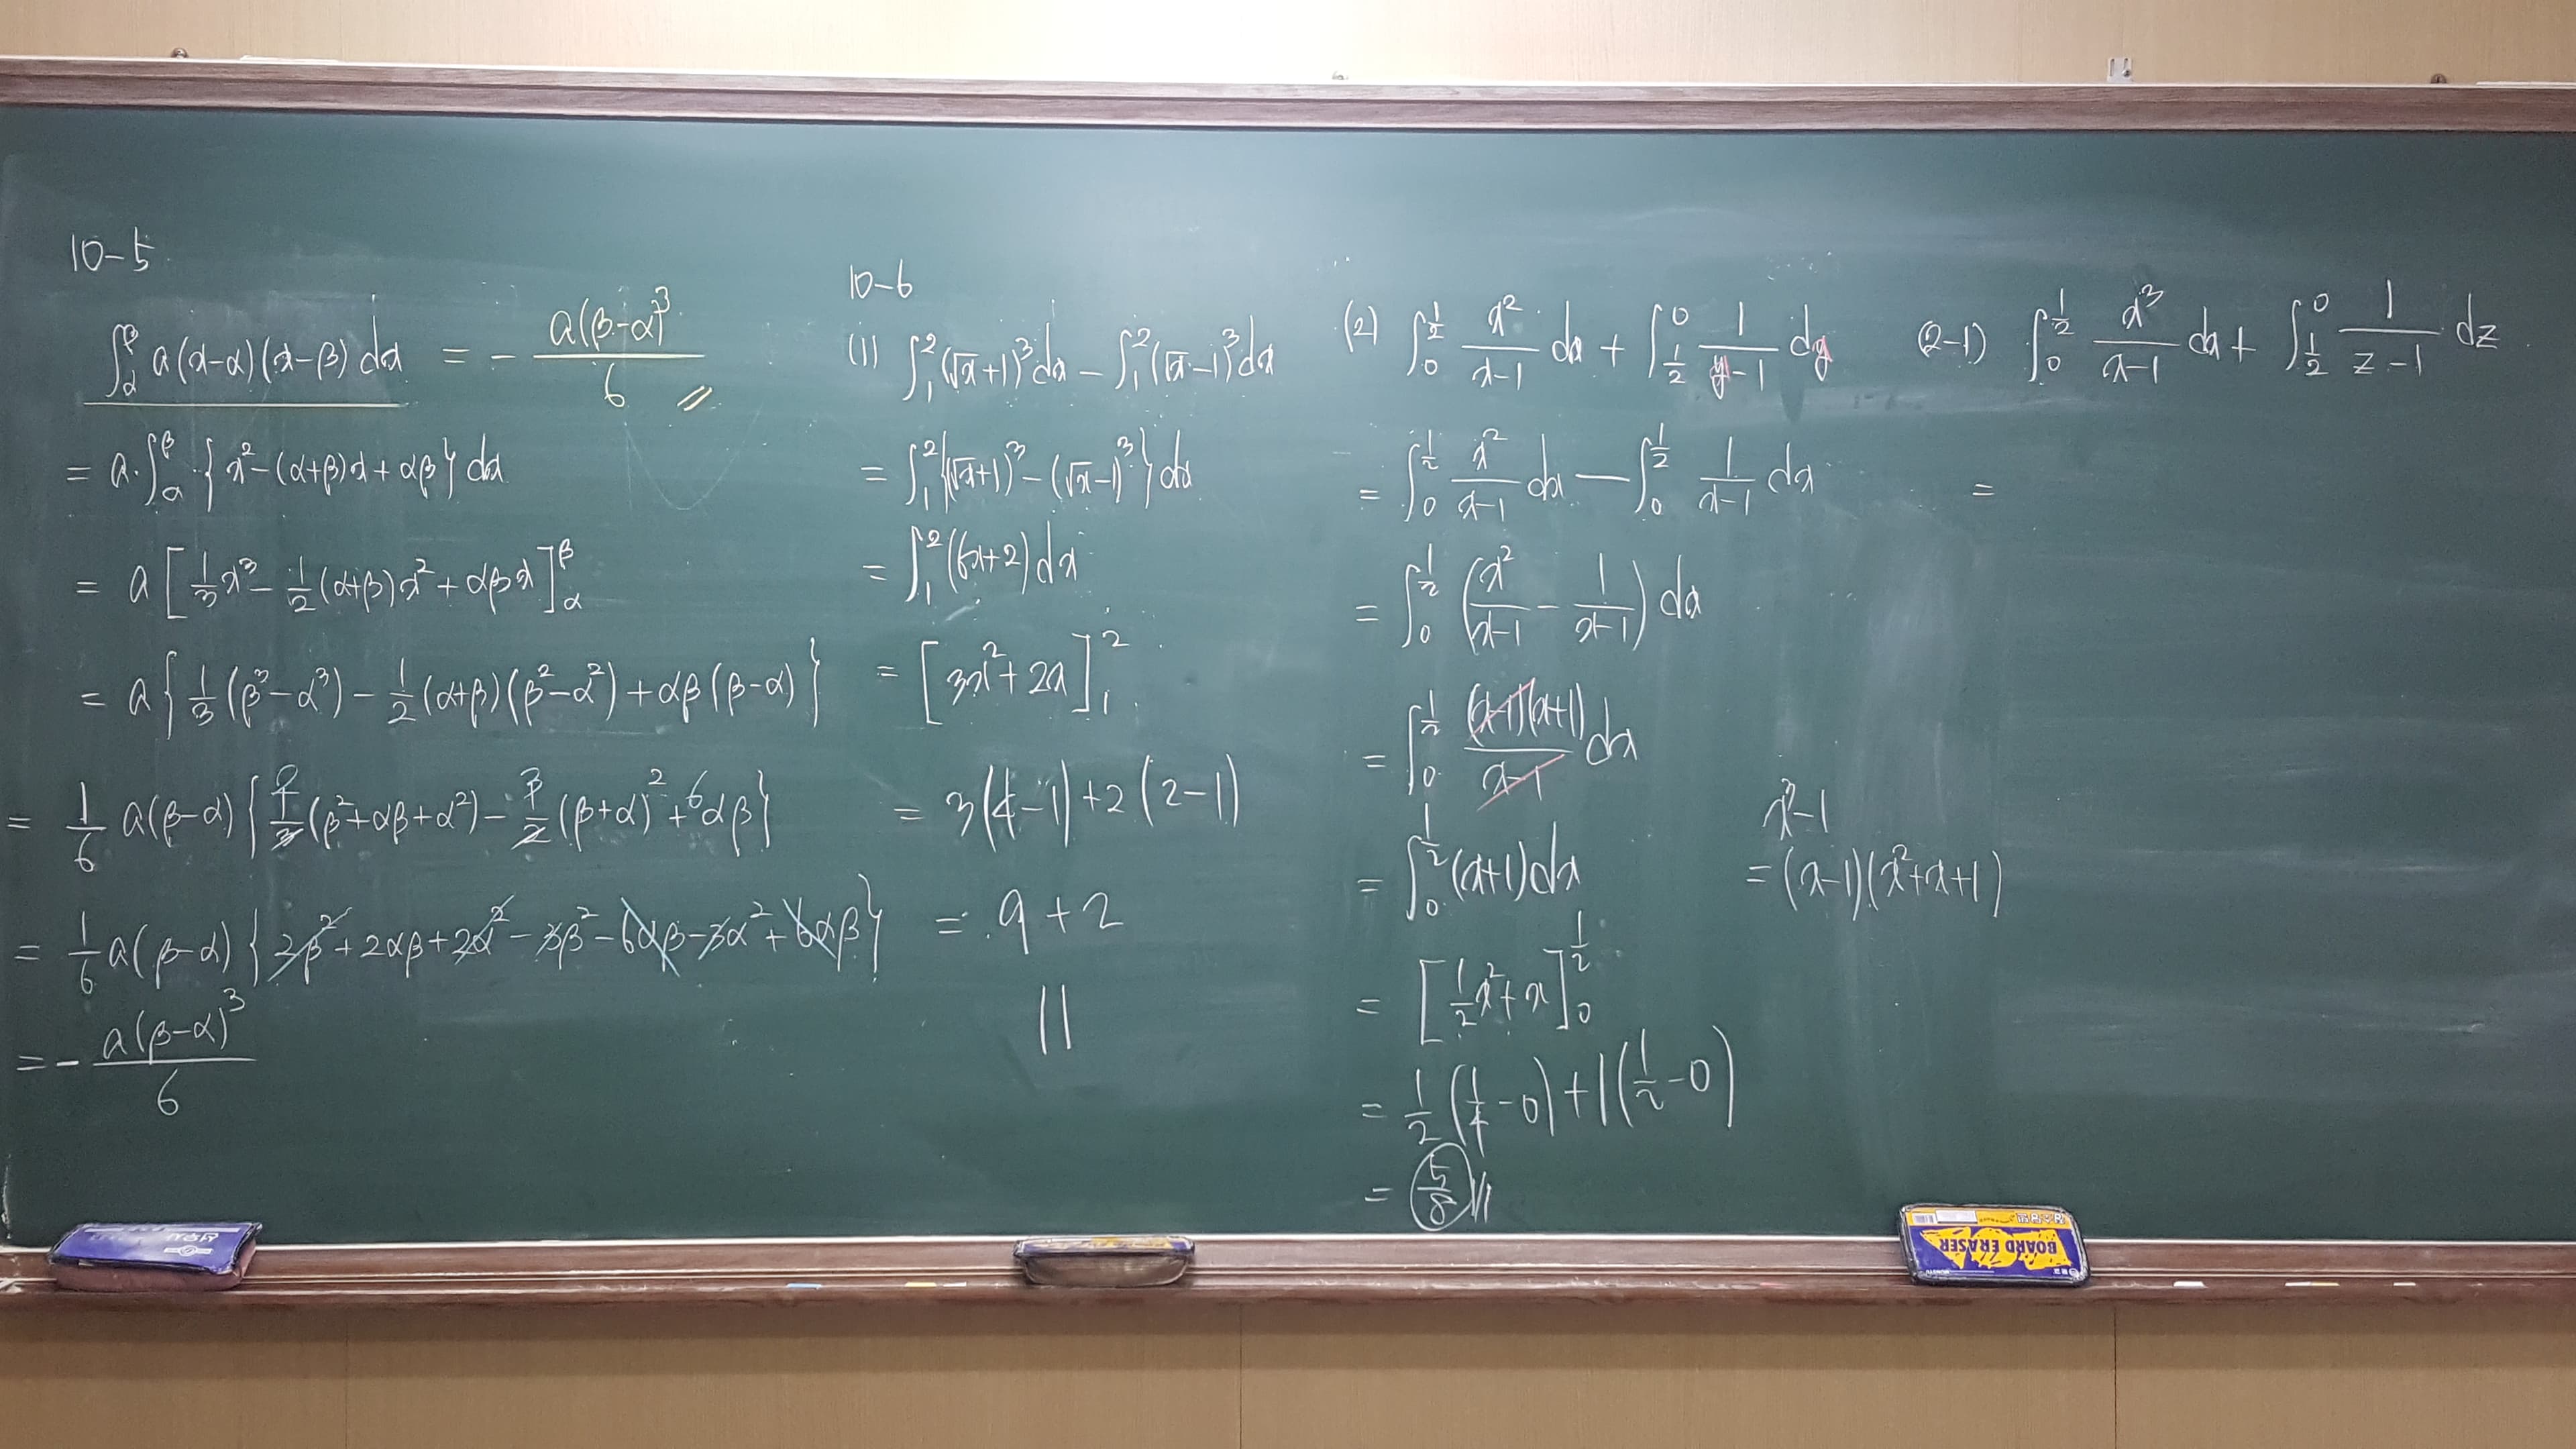 10-5
∫_α^β a(x-α)(x-β)dx = - a(β-α)³/6
= a·∫_α^β {x²-(α+β)x+αβ}dx
= a[1/3 x³ - 1/2 (α+β)x² + αβx]_α^β
= a{1/3 (β³-α³) - 1/2 (α+β)(β²-α²) + αβ(β-α)}
= 1/6 a(β-α){2/3 (β²+αβ+α²) - 3/2 (β+α)² + 6αβ}
= 1/6 a(β-α){2β²+2αβ+2α²-3β²-6αβ-3α²+6αβ}
= - a(β-α)³/6
10-6
(1) ∫_1^2 (√x+1)³dx - ∫_1^2 (√x-1)³dx
= ∫_1^2 {(√x+1)³-(√x-1)³}dx
= ∫_1^2 (6x+2)dx
= [3x²+2x]_1^2
= 3(4-1)+2(2-1)
= 9+2
11
(2) ∫_0^{1/2} x²/(x-1) dx + ∫_{1/2}^0 1/(y-1) dy
= ∫_0^{1/2} x²/(x-1) dx - ∫_0^{1/2} 1/(x-1) dx
= ∫_0^{1/2} (x²/(x-1) - 1/(x-1))dx
= ∫_0^{1/2} (x-1)(x+1)/(x-1) dx
= ∫_0^{1/2} (x+1)dx
= [1/2 x²+x]_0^{1/2}
= 1/2 (1/4 -0)+1(1/2 -0)
= 5/8
(2-1) ∫_0^{1/2} x³/(x-1) dx + ∫_{1/2}^0 1/(z-1) dz
=
x³-1
=(x-1)(x²+x+1)
BOARD ERASER